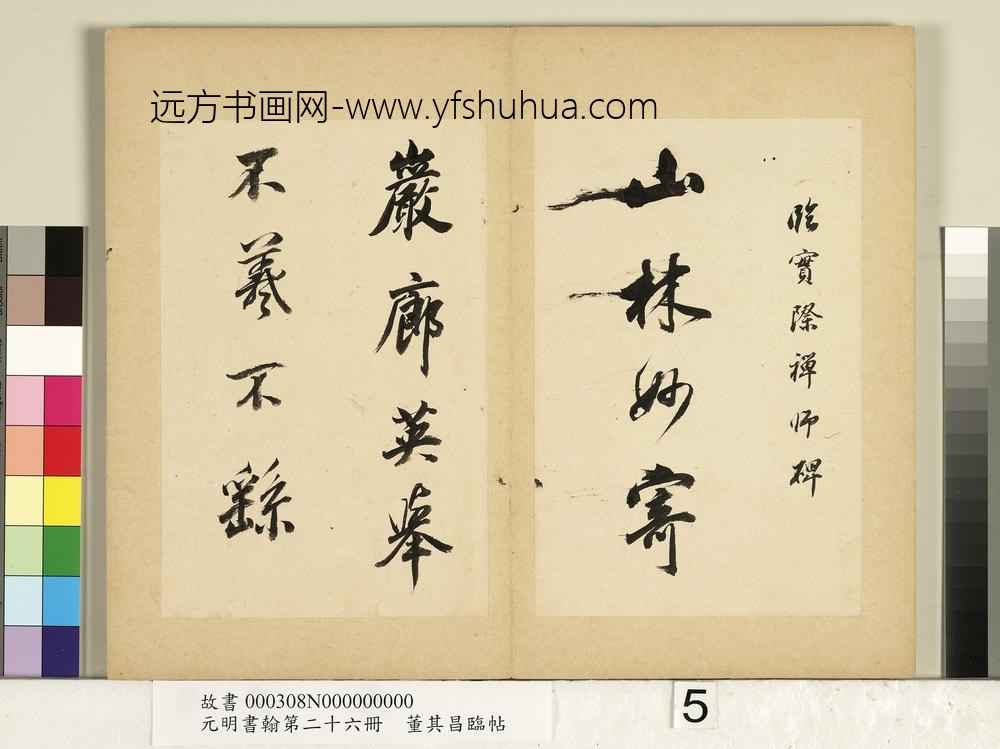 远方书画网-www.yfshuhua.com
臨實際禪師碑
山林妙寄
巖廊英舉
不羲不繇
故書 000308N000000000
元明書翰第二十六冊 董其昌臨帖
5